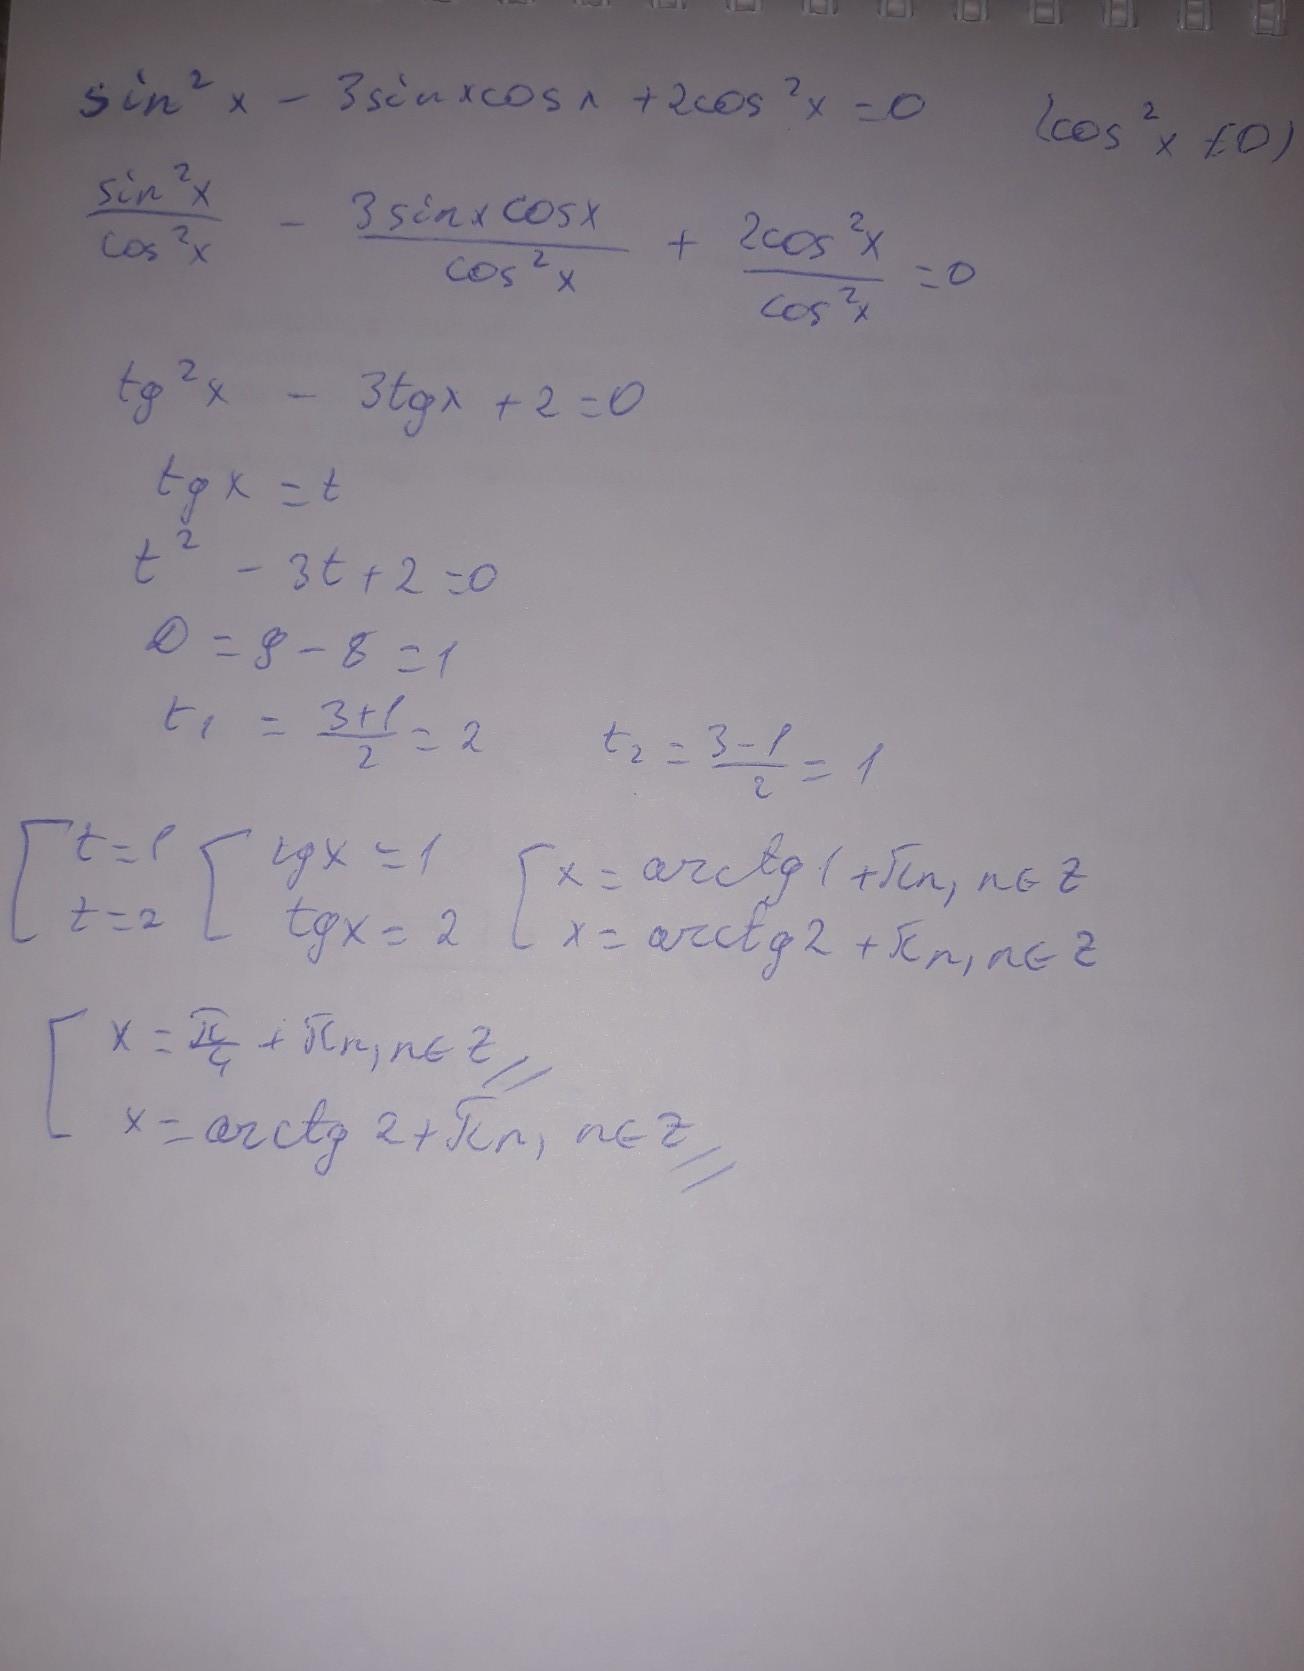 sin²x - 3sinxcosx + 2cos²x = 0 (cos²x ≠ 0)
sin²x/cos²x - 3sinxcosx/cos²x + 2cos²x/cos²x = 0
tg²x - 3tgx + 2 = 0
tgx = t
t² - 3t + 2 = 0
D = 9 - 8 = 1
t₁ = (3+1)/2 = 2 t₂ = (3-1)/2 = 1
[ t = 1 [ tgx = 1 [ x = arctg1 + πn, n∈Z
t = 2 tgx = 2 x = arctg2 + πn, n∈Z
[ x = π/4 + πn, n∈Z //
x = arctg 2 + πn, n∈Z //